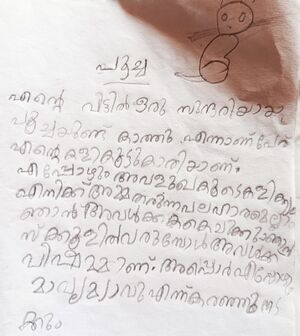 പൂച്ച
എന്റെ വീട്ടിൽ ഒരു സുന്ദരിയായ
പൂച്ചയുണ്ട് കാത്തു എന്നാണ് പേര്
എന്റെ കളികൂട്ടുകാരിയാണ്.
എപ്പോഴും അവളുടെ കൂടെ കളിക്കും
എനിക്ക് അമ്മ തരുന്ന പലഹാരങ്ങളിൽ
ഞാൻ അവൾക്കും കൊടുക്കും
സ്ക്കൂളിൽ വരുമ്പോൾ അവൾക്ക്
വിഷമമാണ്. അപ്പൊൾ
മ്യാവൂ മ്യാവൂ എന്ന് കരഞ്ഞു
ക്കും